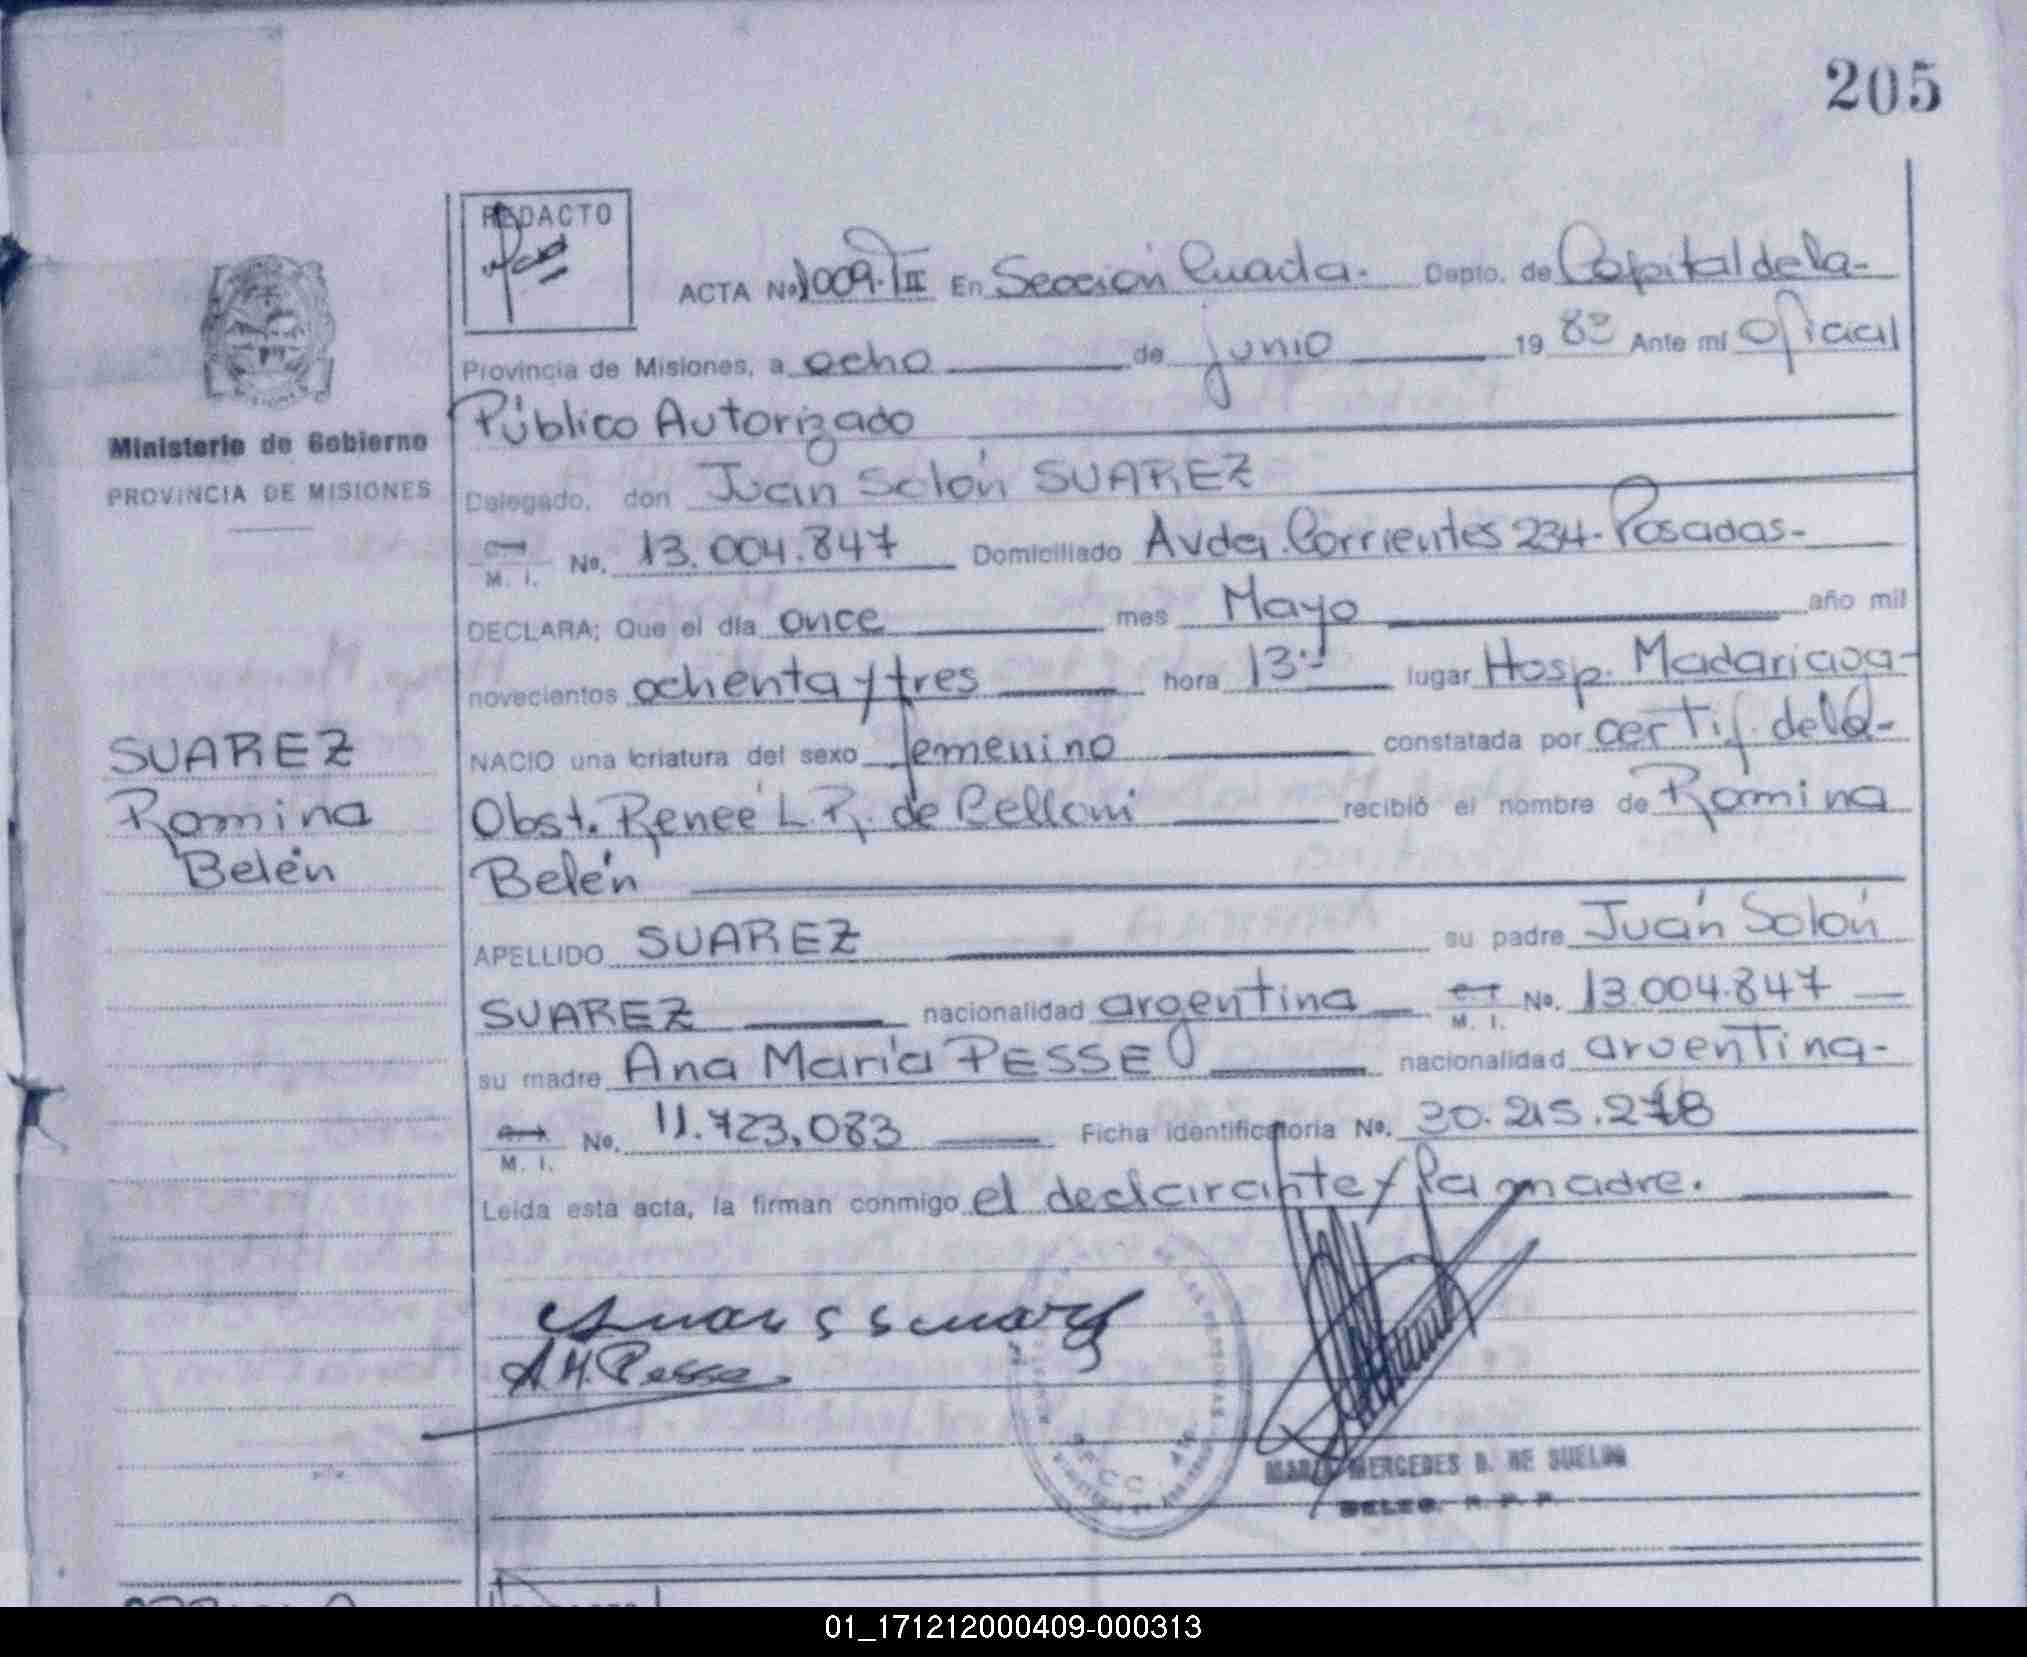 205
REDACTO
ACTA No. 1009.TIII En Sección Cuarta. Depto. de Capital de la-
Provincia de Misiones, a ocho de junio 1983 Ante mí Oficial
Público Autorizado
Delegado, don Juán Solón SUAREZ
M. I. No. 13.004.847 Domiciliado Avda. Corrientes 234- Posadas-
DECLARA; Que el día once mes Mayo año mil
novecientos ochenta y tres hora 13:- lugar Hosp. Madariaga-
NACIO una criatura del sexo femenino constatada por certif. de la-
Obst. Reneé L. R. de Celloni recibió el nombre de Romina
Belén
APELLIDO SUAREZ su padre Juán Solón
SUAREZ nacionalidad argentina M. I. No. 13.004.847
su madre Ana María PESSE nacionalidad argentina-
M. I. No. 11.723.083 Ficha identificatoria No. 30.215.278
Leída esta acta, la firman conmigo el declarante y la madre.
Ministerio de Gobierno
PROVINCIA DE MISIONES
SUAREZ
Romina
Belén
Juan S Suarez
A.M. Pesse
MARIA MERCEDES D. DE
DELEG. R. P. P.
01_171212000409-000313